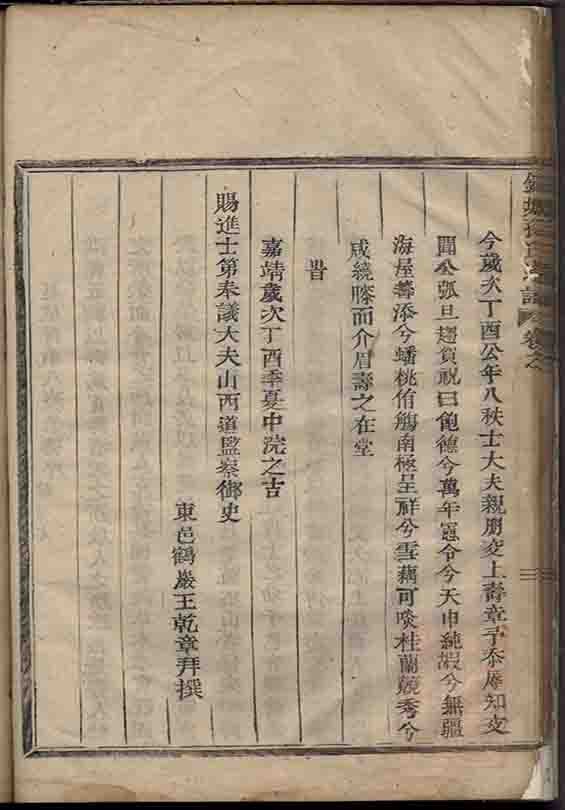 今歲次丁酉公年八秩士大夫親朋交上壽章予忝辱知交
聞公弧旦趨賀祝曰飽德兮萬年憲令兮天申純嘏兮無疆
海屋籌添兮蟠桃侑觴南極呈祥兮雪藕可啖桂蘭競秀兮
咸繞膝而介眉壽之在堂
旹
嘉靖歲次丁酉季夏中浣之吉
賜進士第奉議大夫山西道監察御史
東邑鶴巖王乾章拜撰